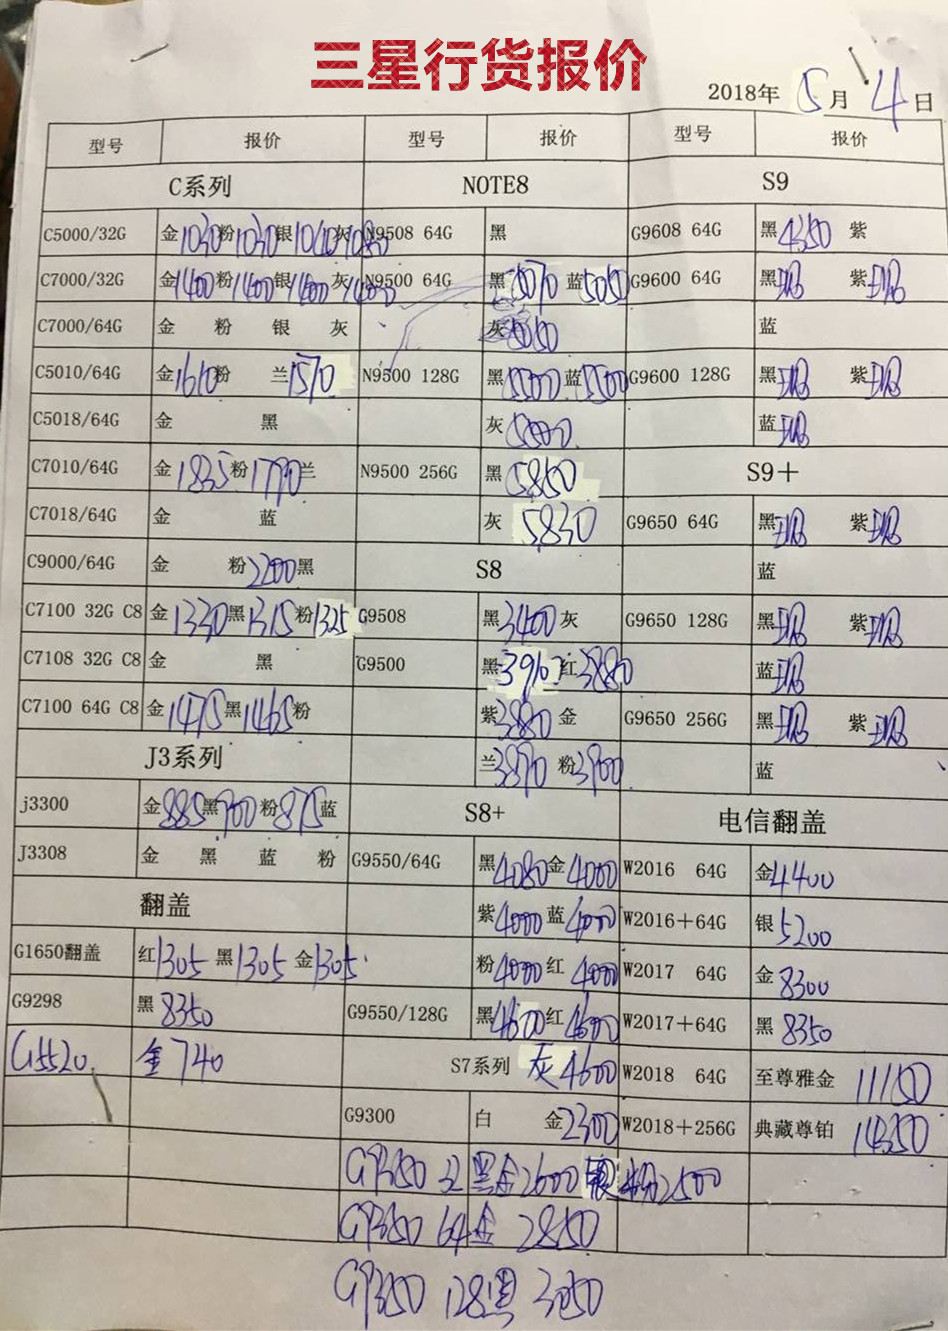 三星行货报价
2018年 5月 4日
型号 报价 型号 报价 型号 报价
C系列 NOTE8 S9
C5000/32G 金1030粉1030银1040灰 N9508 64G 黑 G9608 64G 黑4350 紫
C7000/32G 金1400粉1400银1400灰1400 N9500 64G 黑5070 蓝5050 G9600 64G 黑 紫
C7000/64G 金 粉 银 灰 灰5050 蓝
C5010/64G 金1610粉 兰1570 N9500 128G 黑5500蓝5500 G9600 128G 黑 紫
C5018/64G 金 黑 灰 蓝
C7010/64G 金1835粉1790兰 N9500 256G 黑5850 S9＋
C7018/64G 金 蓝 灰5830 G9650 64G 黑 紫
C9000/64G 金 粉2200黑 S8 蓝
C7100 32G C8 金1330黑1315粉1325 G9508 黑3400灰 G9650 128G 黑 紫
C7108 32G C8 金 黑 G9500 黑 红3880 蓝
C7100 64G C8 金1475黑1465粉 紫3880 金 G9650 256G 黑 紫
J3系列 兰3870 粉3900 蓝
j3300 金885黑900粉875蓝 S8+ 电信翻盖
J3308 金 黑 蓝 粉 G9550/64G 黑4080金4000 W2016 64G 金4400
翻盖 紫4000蓝4000 W2016＋64G 银5200
G1650翻盖 红1305 黑1305 金1305 粉4000红4000 W2017 64G 金8300
G9298 黑8350 G9550/128G 黑4600红4600 W2017＋64G 黑8350
G5520 金740 S7系列 灰4600 W2018 64G 至尊雅金 11150
G9300 白 金2300 W2018＋256G 典藏尊铂 14350
G9350 32 黑金2600 银粉2500
G9350 64金 2850
G9350 128黑